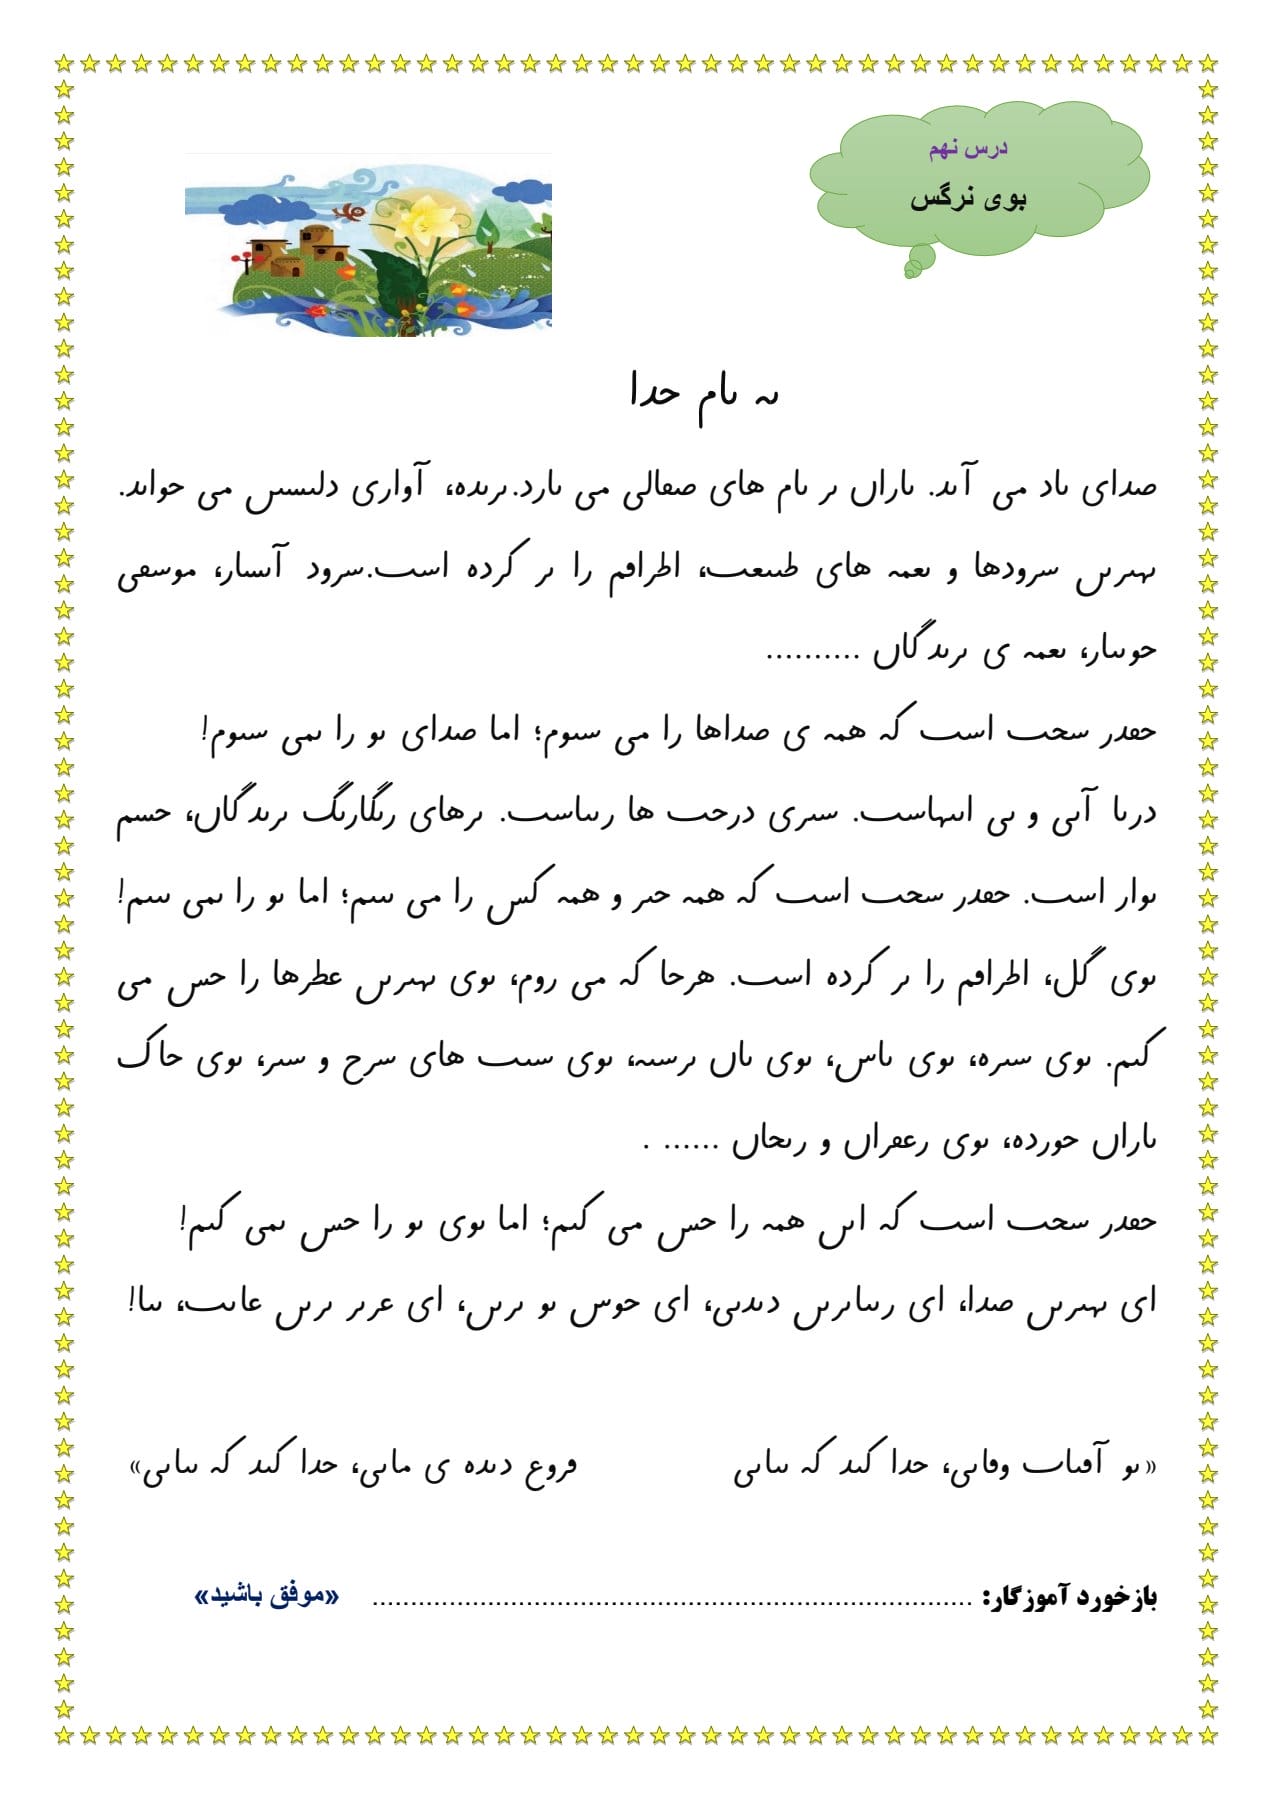 درس نهم
بوی نرگس
به نام خدا
صدای باد می آید. باران بر بام های سفالی می بارد.پرنده، آوازی دلنشین می خواند.
بهترین سرودها و نغمه های طبیعت، اطرافم را پر کرده است.سرود آبشار، موسیقی
جویبار، نغمه ی پرندگان ..........
چقدر سخت است که همه ی صداها را می شنوم؛ اما صدای تو را نمی شنوم!
دریا آبی و بی انتهاست. سبزی درخت ها زیباست. پرهای رنگارنگ پرندگان، چشم
نواز است. چقدر سخت است که همه چیز و همه کس را می بینم؛ اما تو را نمی بینم!
بوی گل، اطرافم را پر کرده است. هرجا که می روم، بوی بهترین عطرها را حس می
کنم. بوی سبزه، بوی یاس، بوی نان برشته، بوی سیب های سرخ و سبز، بوی خاک
باران خورده، بوی زعفران و ریحان ...... .
چقدر سخت است که این همه را حس می کنم؛ اما بوی تو را حس نمی کنم!
ای بهترین صدا، ای زیباترین دیدنی، ای خوش بو ترین، ای عزیز ترین غایب، بیا!
«تو آفتاب وفایی، خدا کند که بیایی فروغ دیده ی مایی، خدا کند که بیایی»
بازخورد آموزگار: .............................................................................. «موفق باشید»